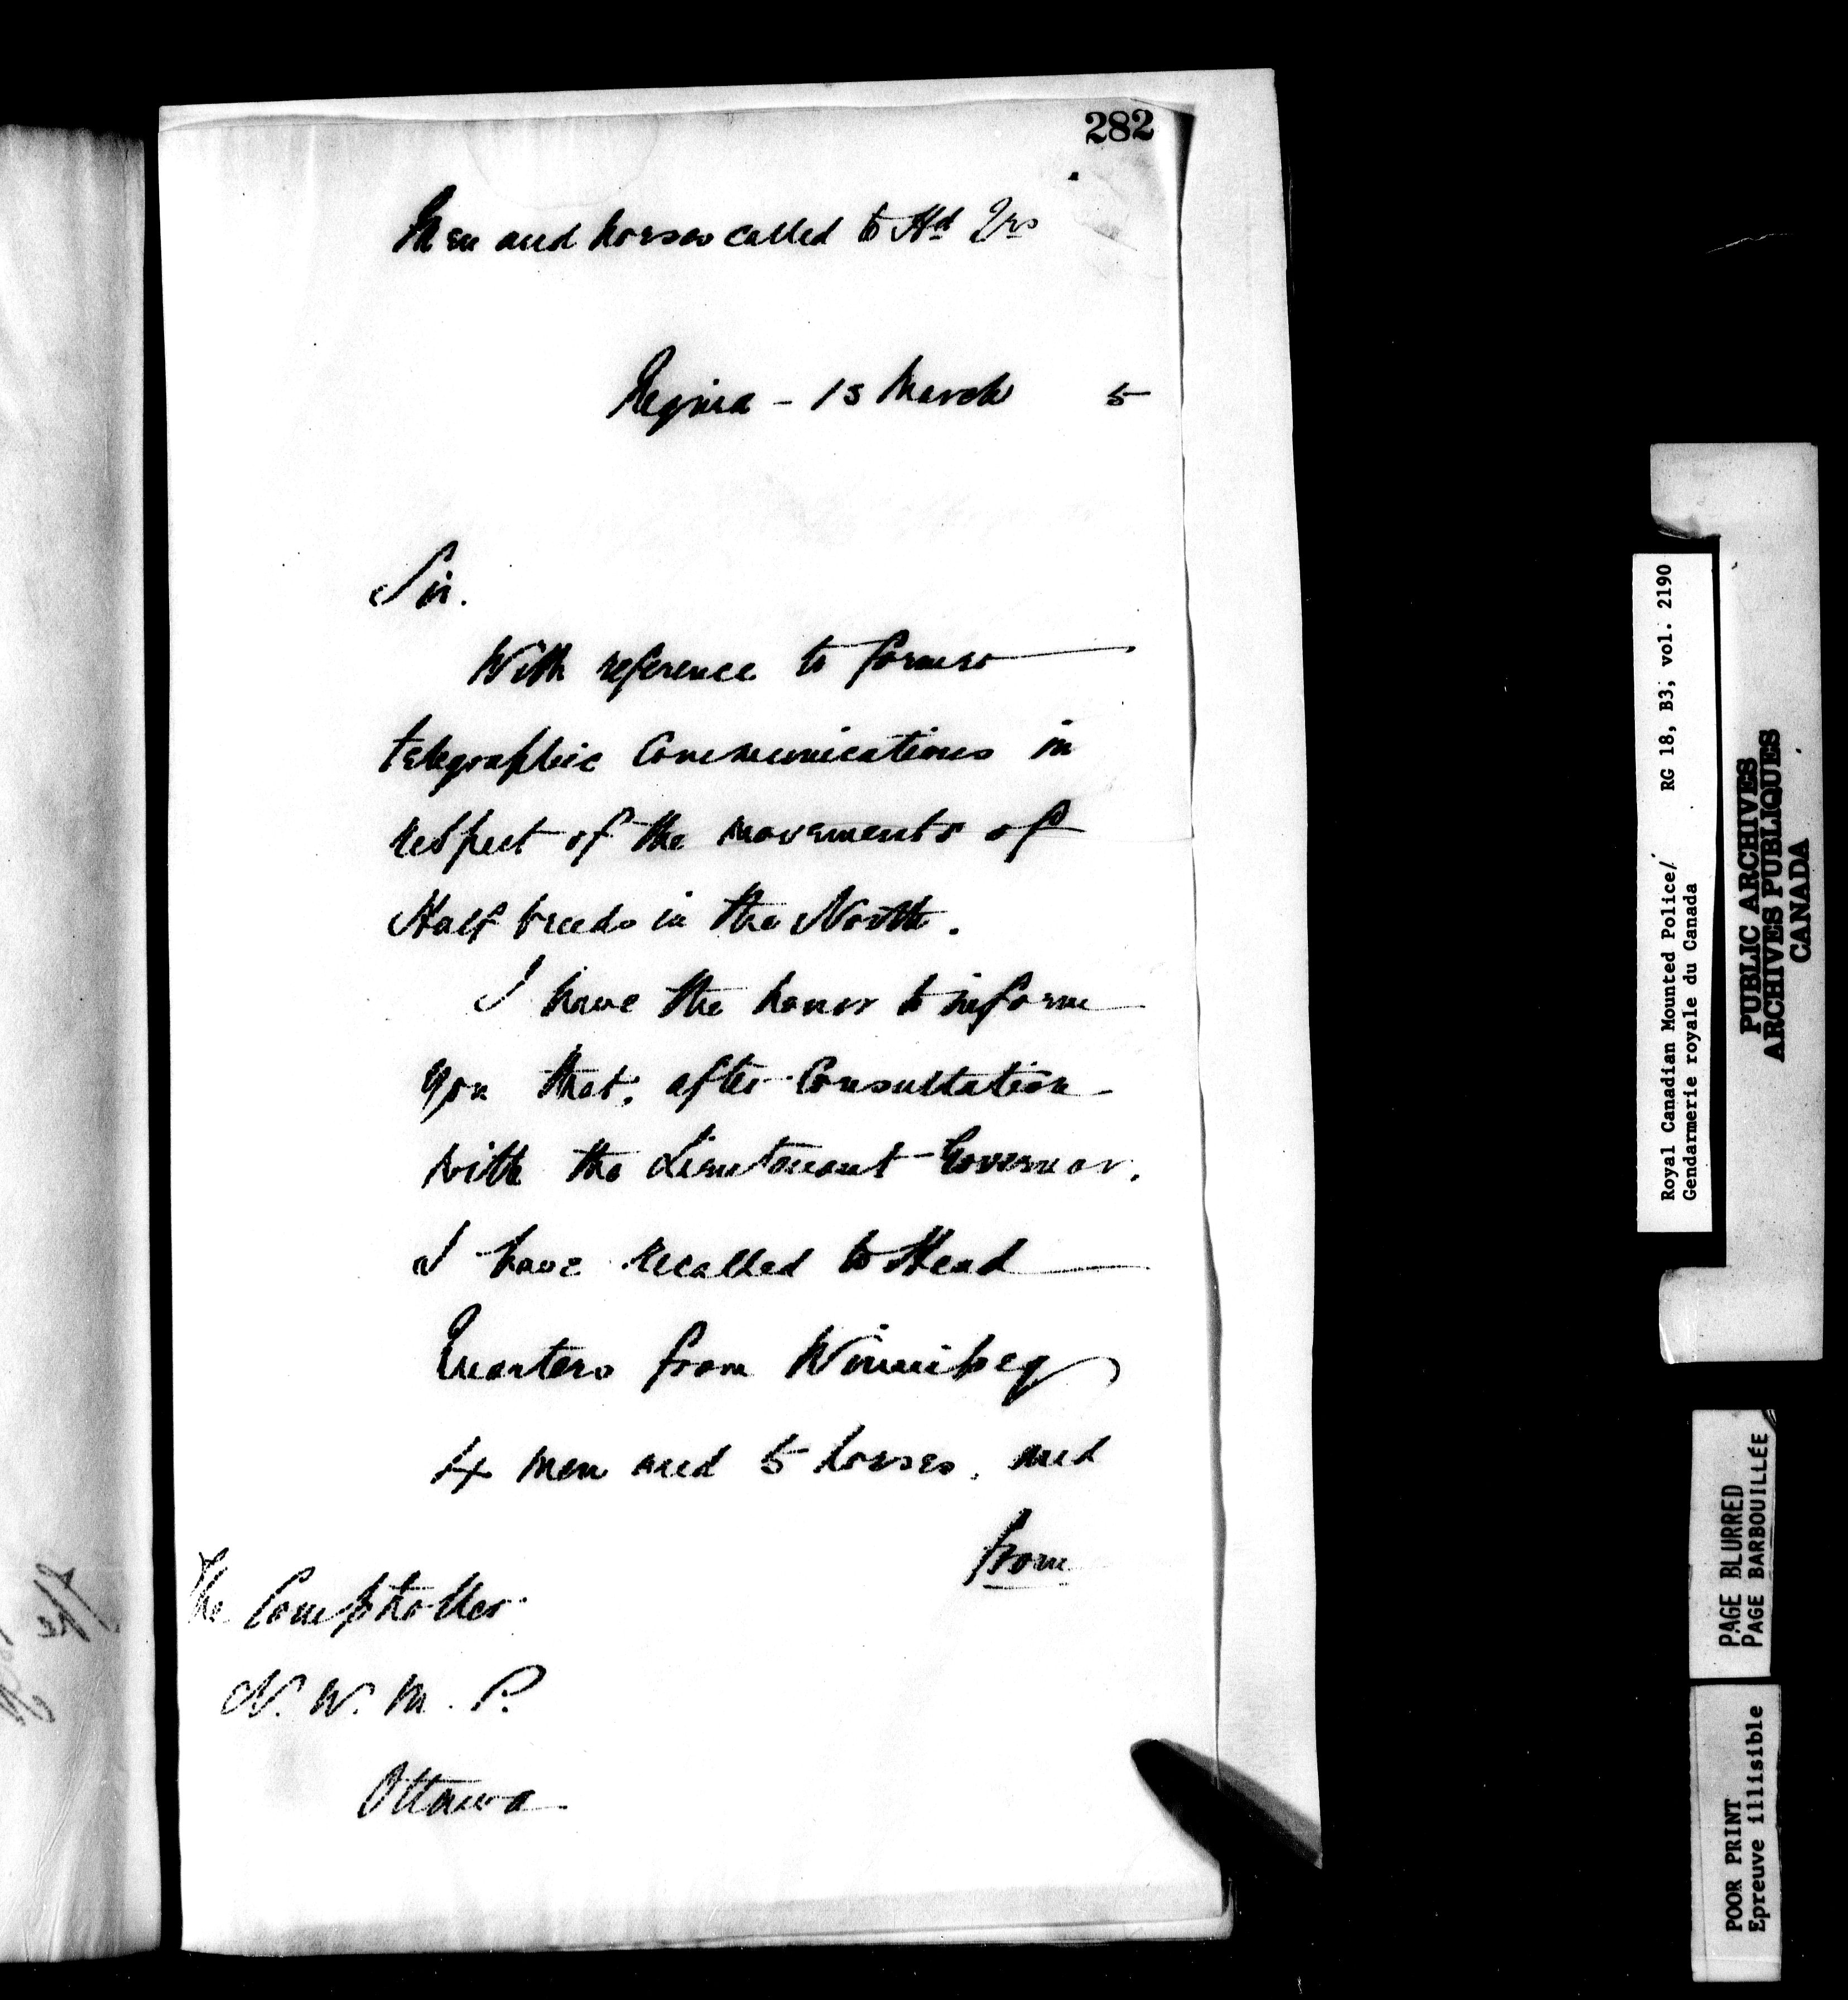 282
Men and horses called to Hd Qrs
Regina - 13 March 5
Sir.
With reference to former
telegraphic Communications in
respect of the movements of
Half breeds in the North.
I have the honor to inform
you that, after Consultation
with the Lieutenant-Governor,
I have recalled to Head
Quarters from Winnipeg
4 men and 5 horses, and
from
The Comptroller
N. W. M. P.
Ottawa
Royal Canadian Mounted Police/ RG 18, B3, vol. 2190
Gendarmerie royale du Canada
PUBLIC ARCHIVES
ARCHIVES PUBLIQUES
CANADA
PAGE BLURRED
PAGE BARBOUILLÉE
POOR PRINT
Epreuve illisible